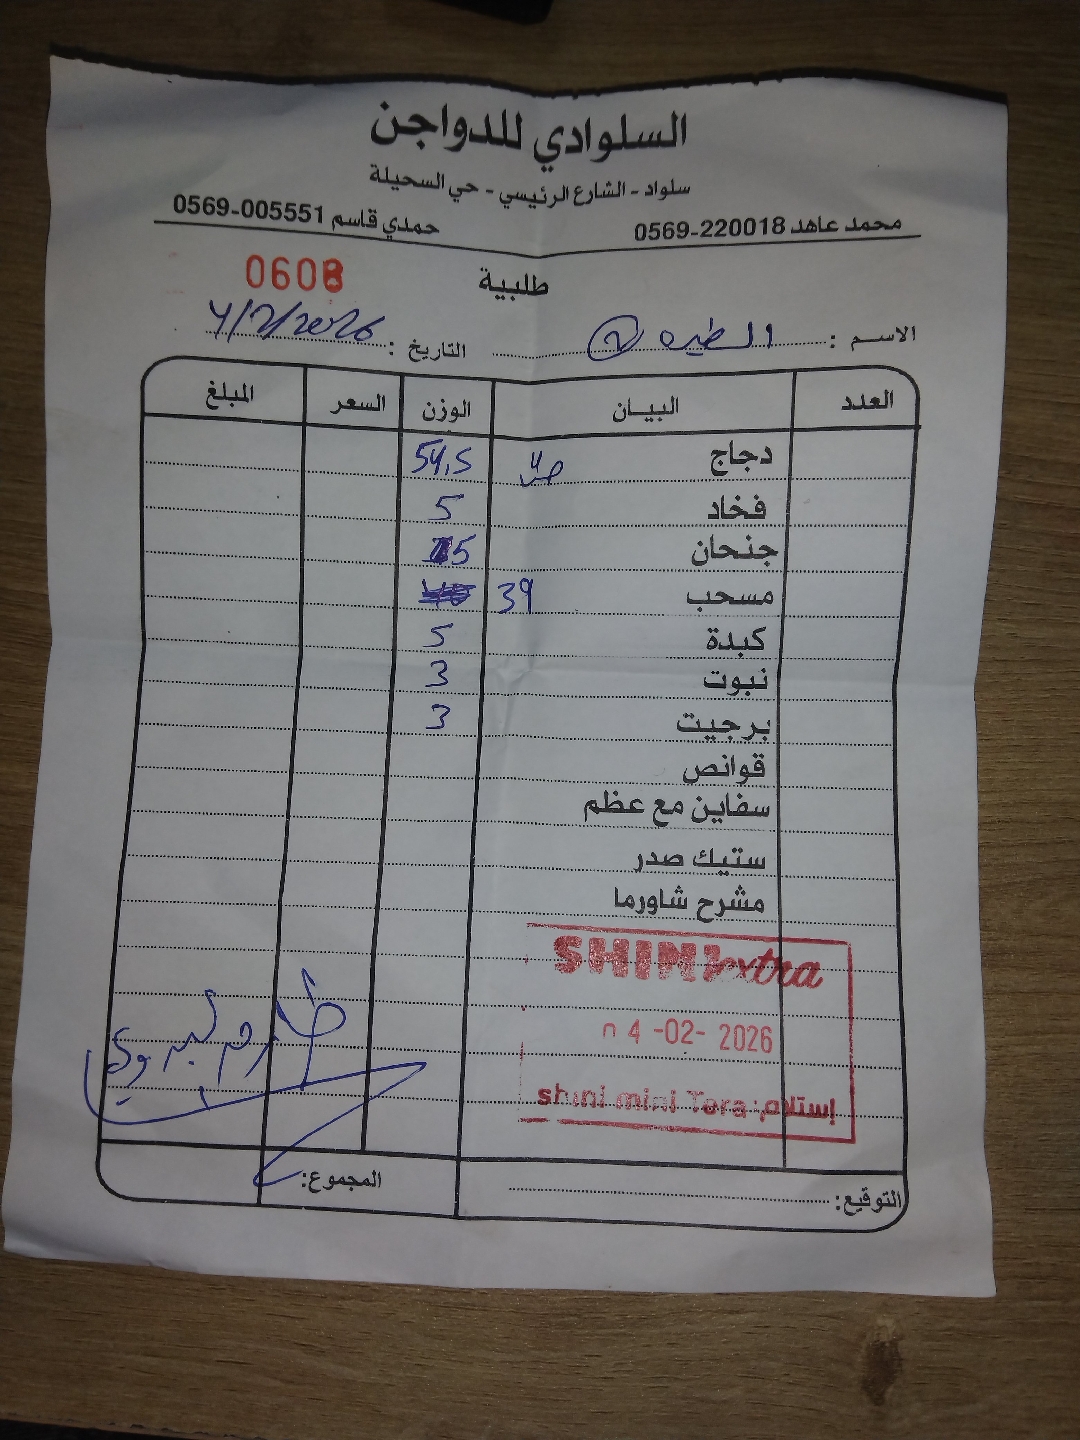 السلوادي للدواجن
سلواد - الشارع الرئيسي - حي السحيلة
محمد عاهد 0569-220018 حمدي قاسم 0569-005551
طلبية 0608
الاسم : الطيره 2 التاريخ : 4/2/2026
العدد البيـان الوزن السعر المبلغ
دجاج 54,5
فخاد 5
جنحان 5
مسحب 39
كبدة 5
نبوت 3
برجيت 3
قوانص
سفاين مع عظم
ستيك صدر
مشرح شاورما
SHINI extra
04-02-2026
إستلام: shini mini Tera
التوقيع: المجموع: